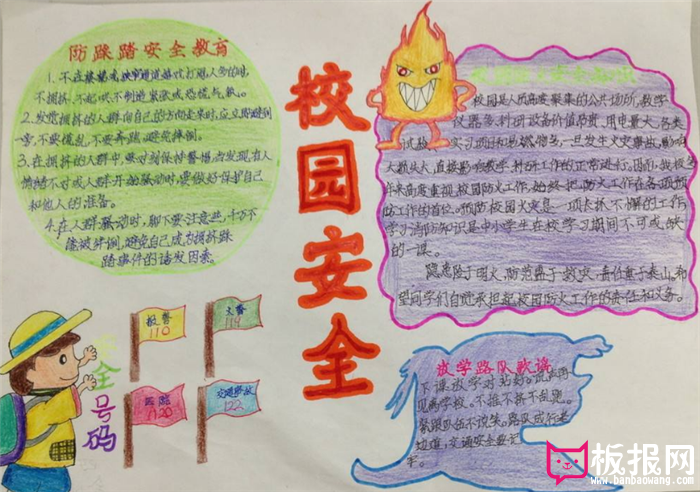 防踩踏安全教育
1、不在楼梯或狭窄通道嬉戏打闹，人多的时候
不拥挤、不起哄、不制造紧张或恐慌气氛。
2、发觉拥挤的人群向自己的方向走来时，应立即避到一
旁，不要慌乱，不要奔跑，避免摔倒。
3、在拥挤的人群中，要时刻保持警惕，当发现有人
情绪不对，或人群开始骚动时，要做好保护自己
和他人的准备。
4、在人群骚动时，脚下要注意些，千万不
能被绊倒，避免自己成为拥挤踩
踏事件的诱发因素。
校园安全
校园是人员高度聚集的公共场所，教学
仪器多，科研设备价值昂贵，用电量大，各类
一旦发生火灾事故，影响
大损失大，直接影响教学、科研工作的正常进行。因而，我校多
年来高度重视校园防火工作，始终把防火工作在各项预
防工作的首位。预防校园火灾是一项长抓不懈的工作，
学习消防知识是中小学生在校学习期间不可或缺
的一课。
隐患险于明火，防范胜于救灾，责任重于泰山，希
望同学们自觉承担起校园防火工作的责任和义务。
安全号码
报警
110
火警
119
医院
120
交通事故
122
放学路队歌谣
下课放学对站好。
见离学校。不推不挤不乱跑。
紧跟队伍不说笑。路队成行走
边道，交通安全要记
牢。
板报网
www.banbaowang.com